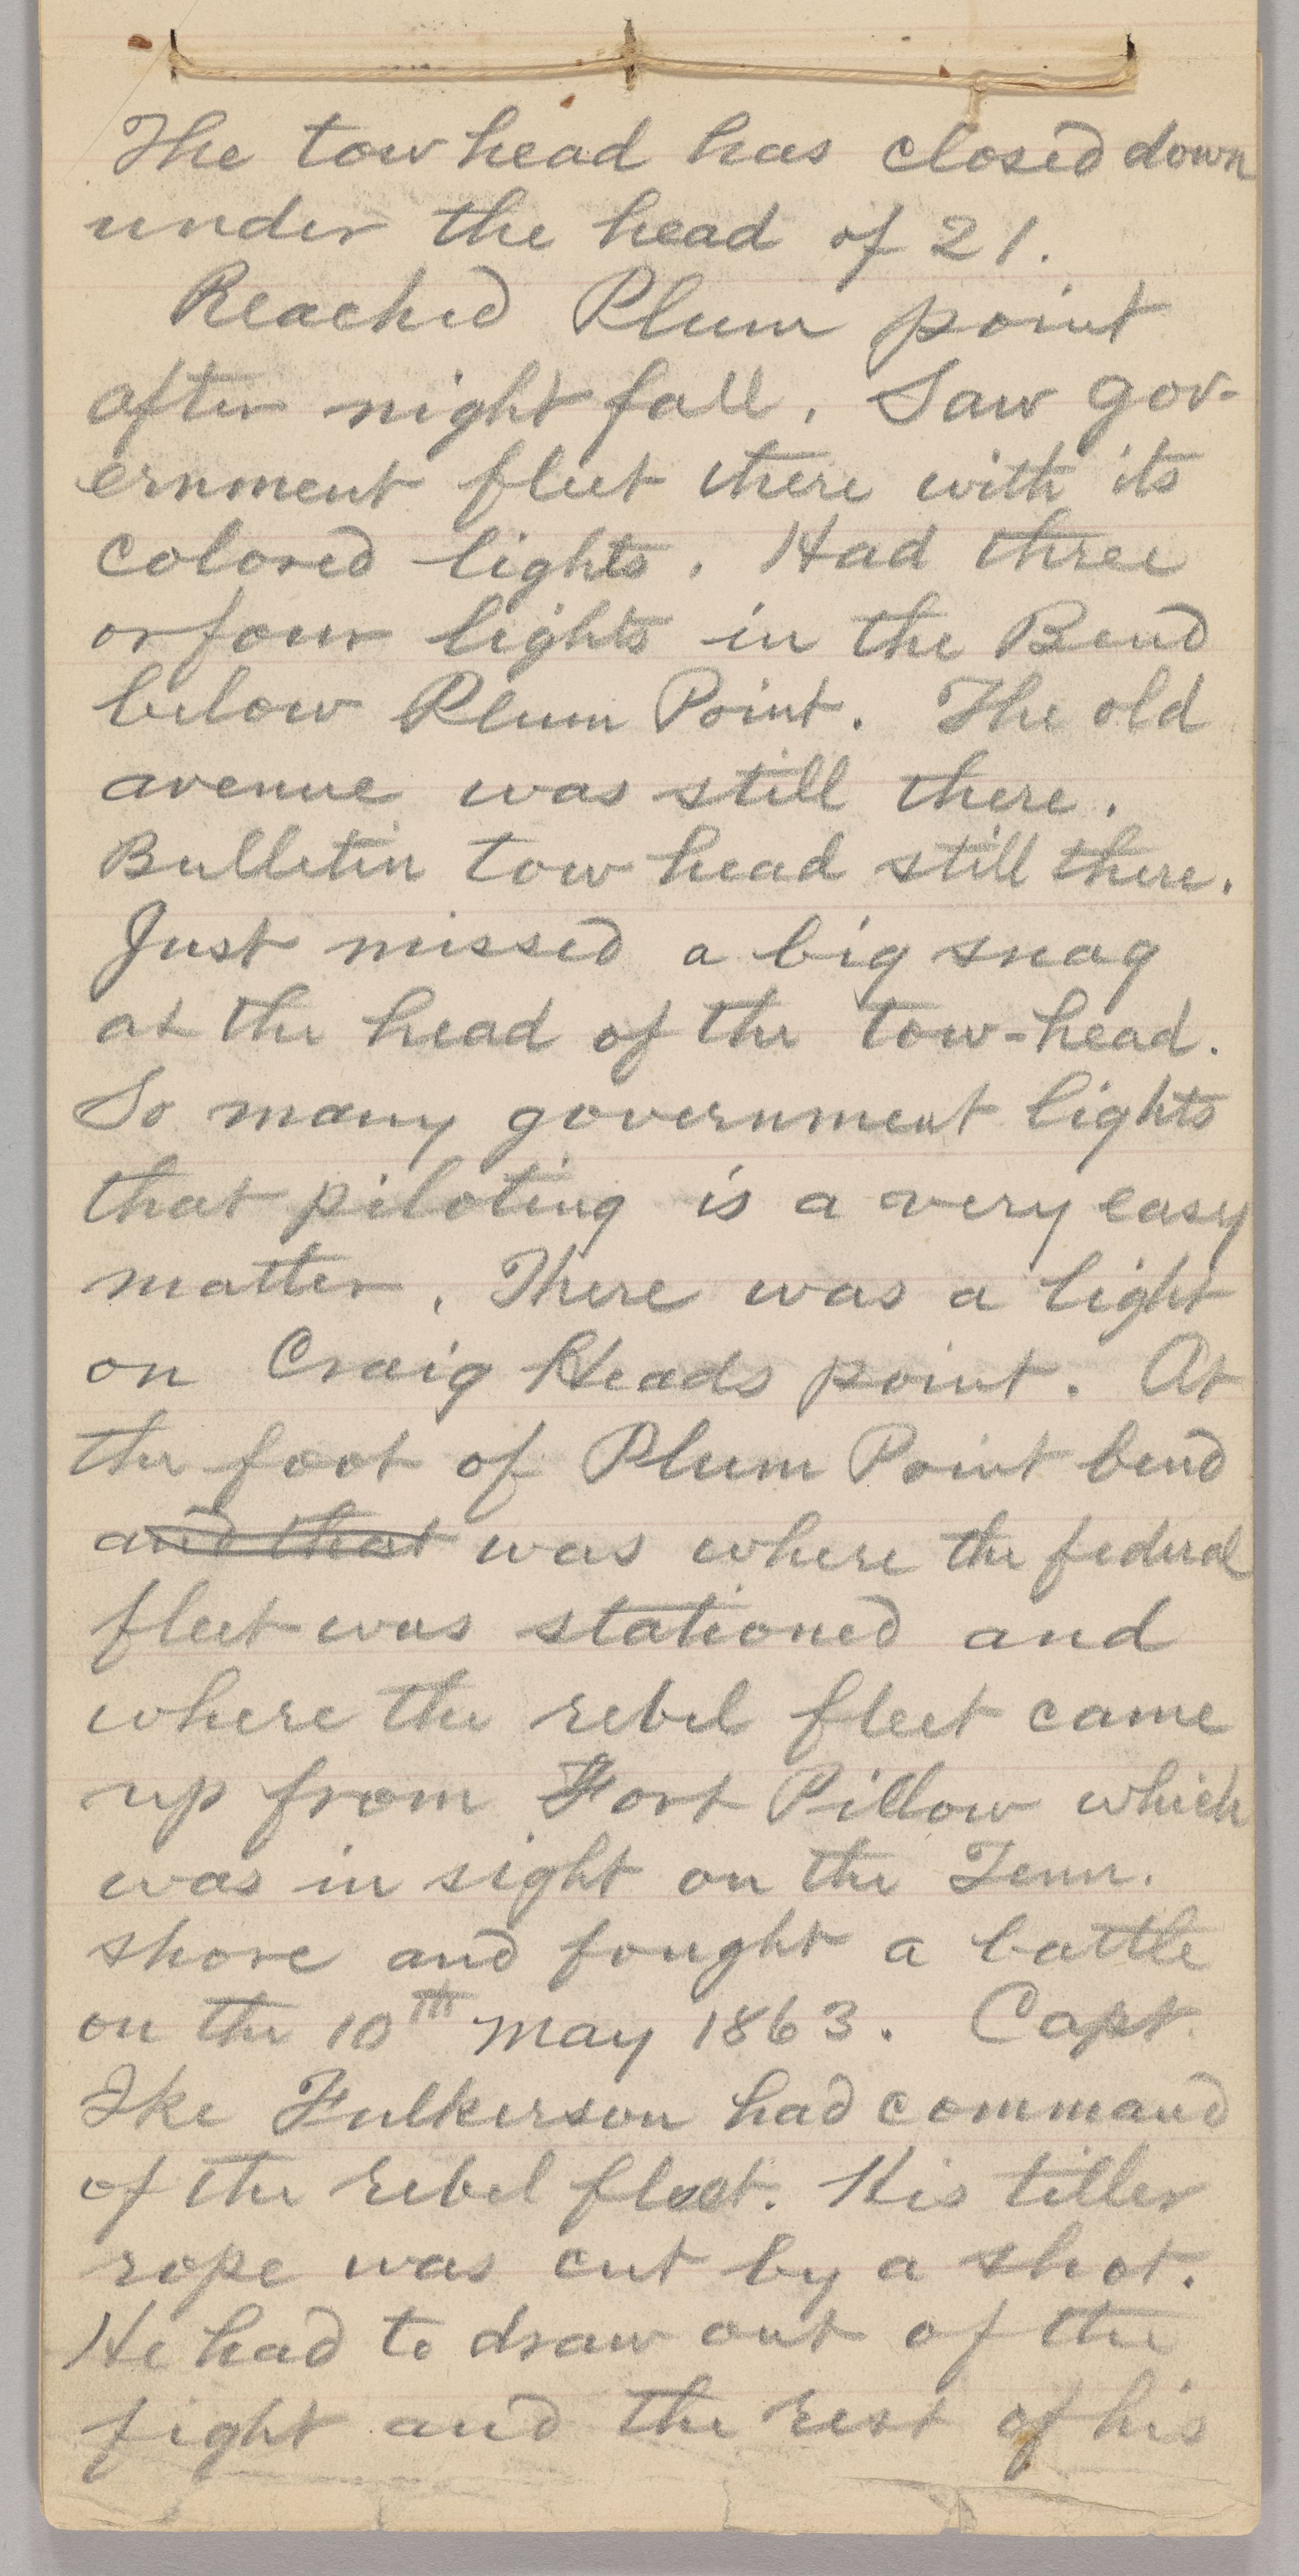 The tow head has closed down
under the head of 21.
Reached Plum point
after night fall. Saw gov-
ernment fleet there with its
colored lights. Had three
or four lights in the Bend
below Plum Point. The old
avenue was still there.
Bulletin tow head still there.
Just missed a big snag
at the head of the tow-head.
So many government lights
that piloting is a very easy
matter. There was a light
on Craig Heads point. At
the foot of Plum Point bend
and that was where the federal
fleet was stationed and
where the rebel fleet came
up from Fort Pillow which
was in sight on the Tenn.
shore and fought a battle
on the 10th May 1863. Capt.
Ike Fulkerson had command
of the rebel fleet. His tiller
rope was cut by a shot.
He had to draw out of the
fight and the rest of his